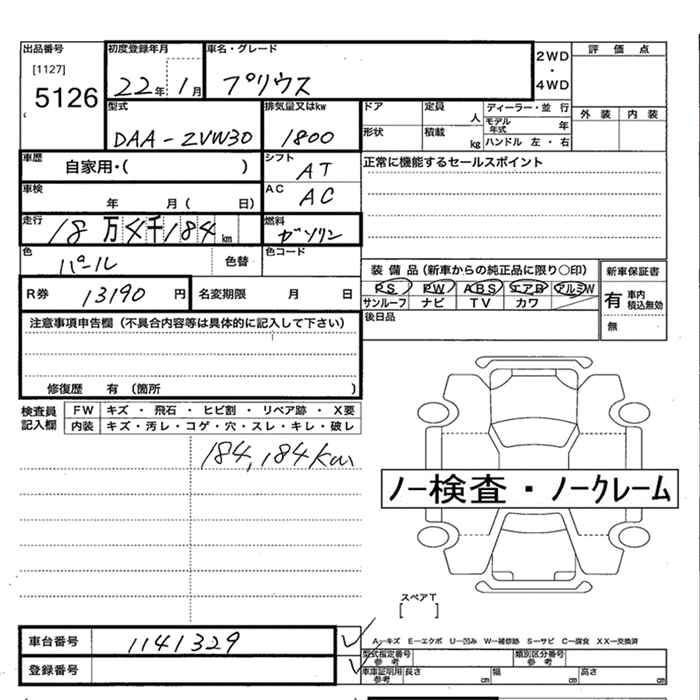 出品番号 初度登録年月 車名・グレード 2WD・4WD 評価点
[1127]
5126 22年1月 プリウス
型式 排気量又はkw ドア 定員 人 ディーラー・並行 外装 内装
DAA-ZVW30 1800 形状 積載 kg モデル年式 年
ハンドル 左・右
車歴 自家用・( ) シフト AT 正常に機能するセールスポイント
車検 年 月( 日) AC AC
走行 18万4千184km 燃料 ガソリン
色 パール 色替 色コード
装備品(新車からの純正品に限り○印) 新車保証書
R券 13190円 名変期限 月 日 PS PW ABS エアB アルミW 有 車内積込無効
サンルーフ ナビ TV カワ
注意事項申告欄(不具合内容等は具体的に記入して下さい) 後日品 無
修復歴 有(箇所 )
検査員記入欄 FW キズ・飛石・ヒビ割・リペア跡・X要
内装 キズ・汚レ・コゲ・穴・スレ・キレ・破レ
184,184km
ノー検査・ノークレーム
スペアT
[ ]
車台番号 1141329 A―キズ E―エクボ U―凹み W―補修跡 S―サビ C―腐食 XX―交換済
型式指定番号 参考 類別区分番号 参考
登録番号 車庫証明用 参考 長さ cm 幅 cm 高さ cm